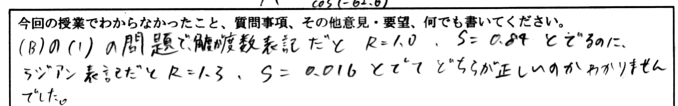 cos(-62.6)
今回の授業でわからなかったこと、質問事項、その他意見・要望、何でも書いてください。
(B)の(1)の問題で、解が度数表記だと R=1.0 、 S=0.84 とでるのに、
ラジアン表記だと R=1.3 、 S=0.016 とでて どちらが正しいのかわかりません
でした。